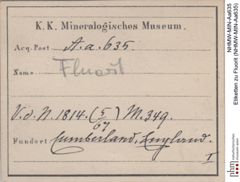 K. K. Mineralogisches Museum.
Acq. Post A.a.635.
Name Fluorit
V. d. N. 1814. (5/67) M. 349.
Fundort Cumberland, England.
I
NHMW-MIN-Aa635
Etiketten zu Fluorit (NHMW-MIN-Aa635)
nhm